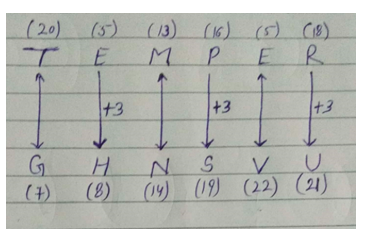 (20) (5) (13) (16) (5) (18)
T E M P E R
+3 +3 +3
G H N S V U
(7) (8) (14) (19) (22) (21)